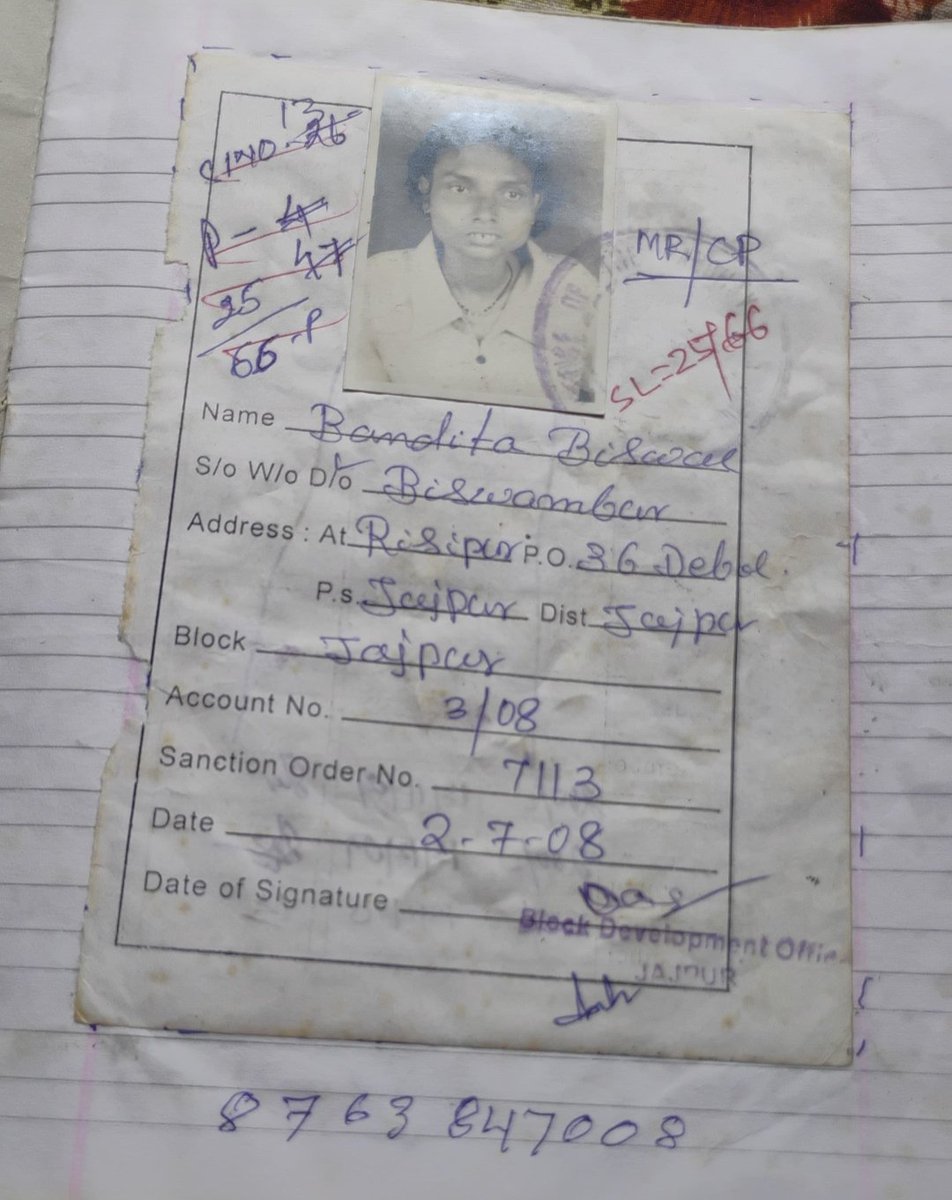 13
P-
47
25
66 P
MR/CP
SL=25/66
Name Bandita Biswal
S/o W/o D/o Biswambar
Address : At Risipur P.O. 36 Debil.
P.s. Jajpur Dist Jajpur
Block Jajpur
Account No. 3/08
Sanction Order No. 7113
Date 2-7-08
Date of Signature
Block Development Offic
JAJPUR
8763847008